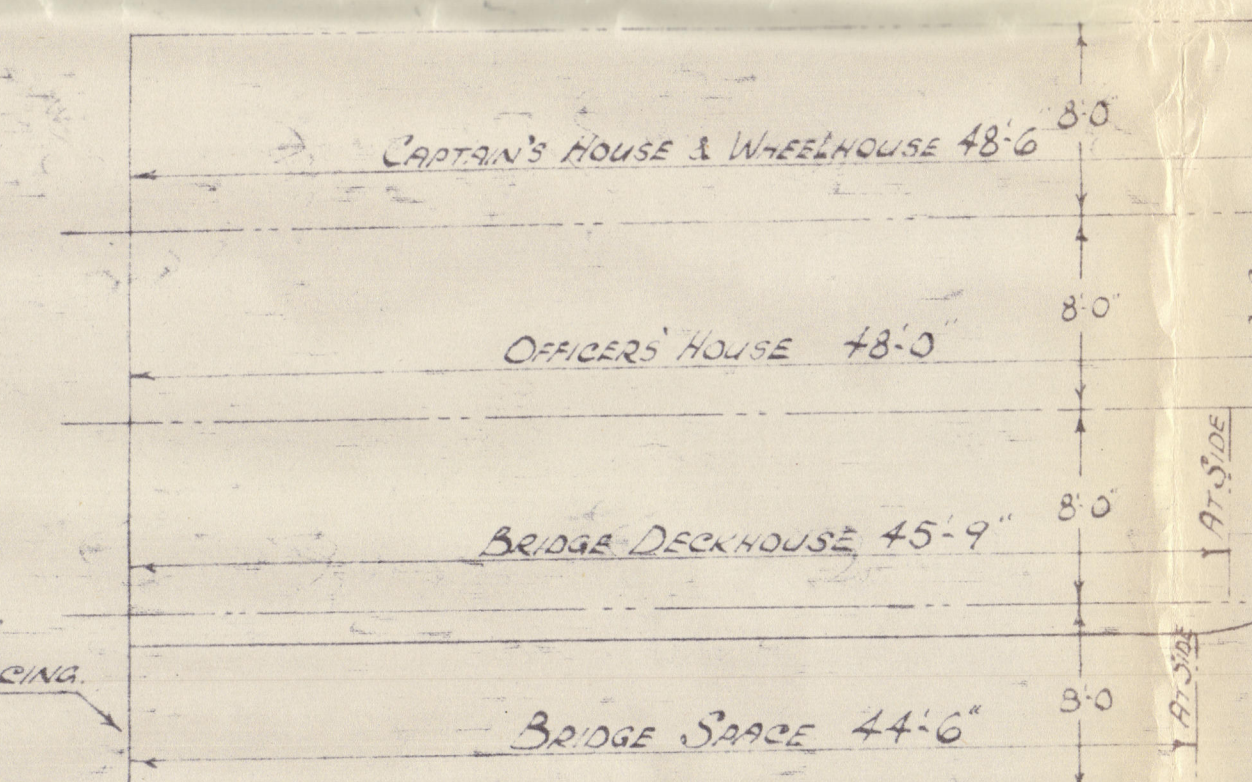 CAPTAIN'S HOUSE & WHEELHOUSE 48'-6"
8'-0"
OFFICERS' HOUSE 48'-0"
8'-0"
BRIDGE DECKHOUSE 45'-9"
8'-0"
AT SIDE
CING.
BRIDGE SPACE 44'-6"
8'-0
AT SIDE